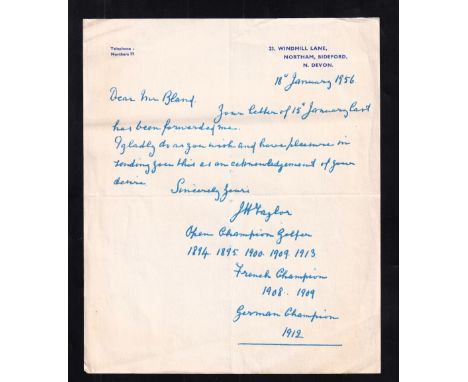 Telephone :
Northam 77
23, WINDMILL LANE,
NORTHAM, BIDEFORD,
N. DEVON.
18th January 1956
Dear Mr Bland.
Your letter of 15th January last
has been forwarded me.
I gladly do as you wish and have pleasure in
sending you this as an acknowledgement of your
desire
Sincerely Yours
JH Taylor
Open Champion Golfer
1894. 1895. 1900. 1909. 1913
French Champion
1908. 1909
German Champion
1912